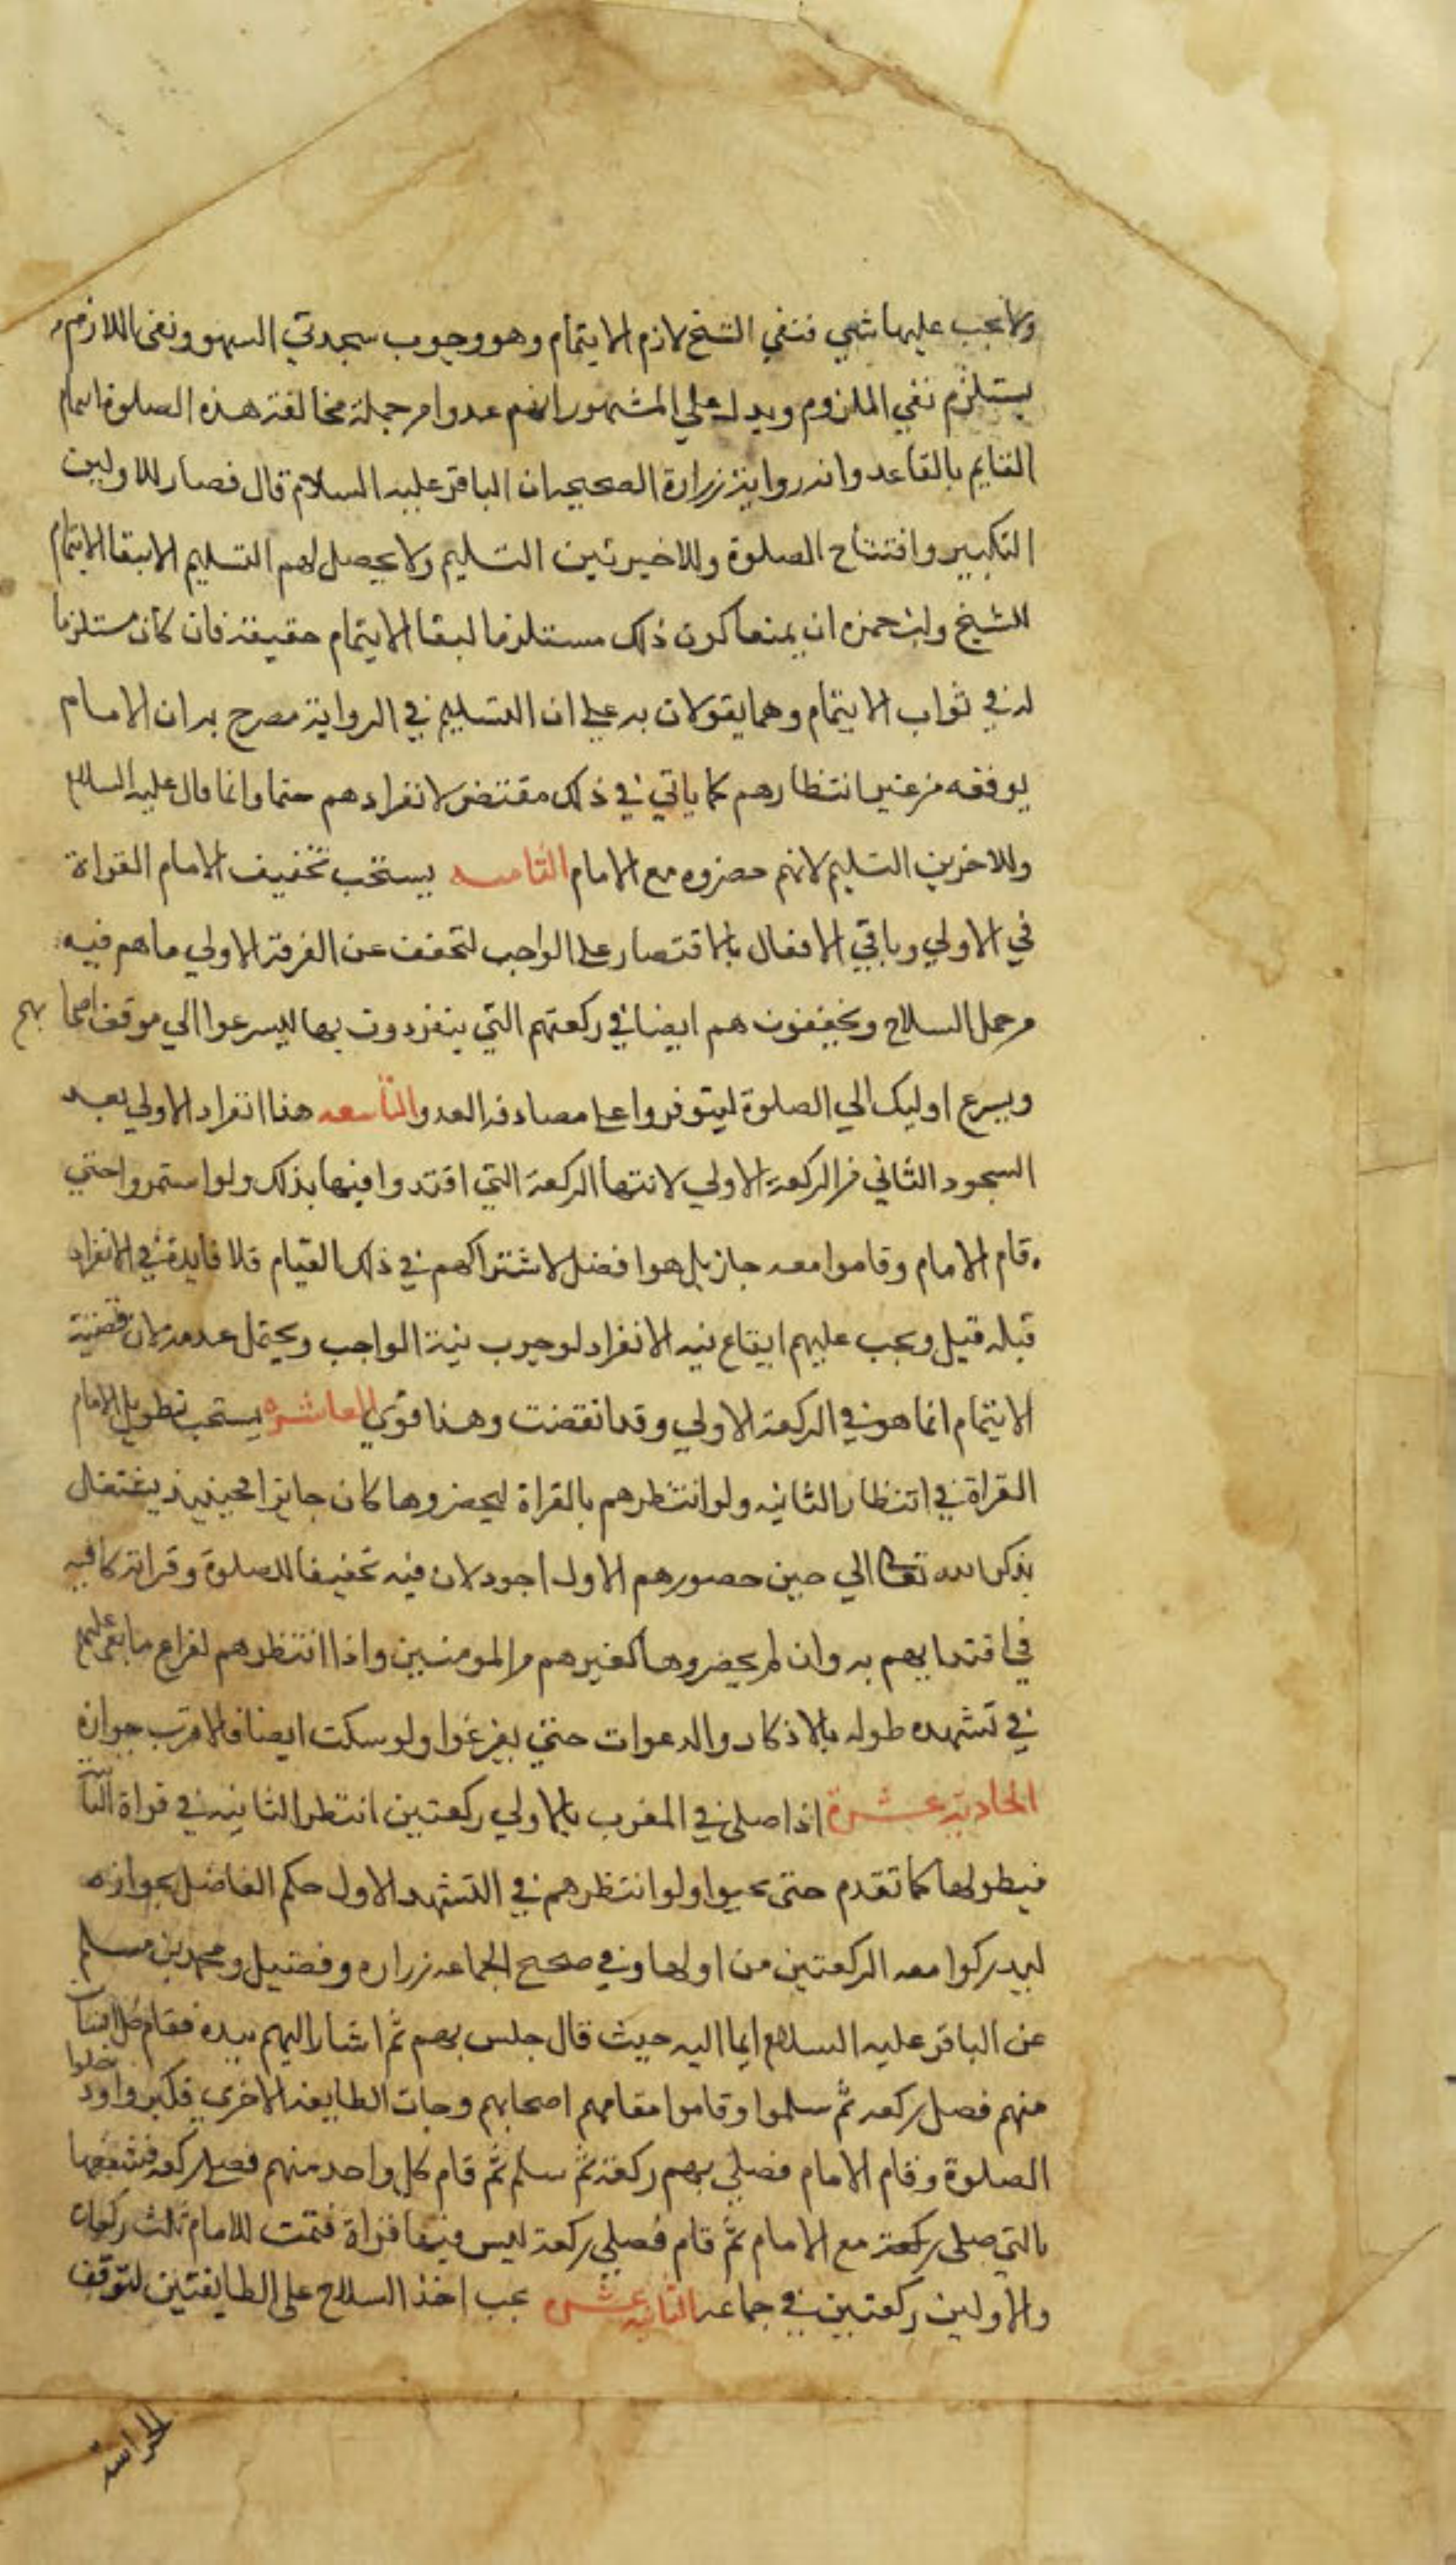 ولا يجب عليها شي فنفي الشيخ لازم الايتمام وهو وجوب سجدتي السهو ونفى اللازم
يستلزم نفي الملزوم ويدل علي المشهور انهم عدوا من جملة مخالفة هذه الصلوة ايتمام
القايم بالقاعد وان رواية زرارة الصحيحه ان الباقر عليه السلام قال فصار للاولين
التكبير وافتتاح الصلوة وللاخيرتين التسليم ولا يحصل لهم التسليم الا ببقا الايتمام
للشيخ وابن حمزه ان يمنعا كون ذلك مستلزما لبقا الايتمام حقيقة فان كان مستلزما
له في ثواب الايتمام وهما يقولان به علي ان التسليم في الرواية مصرح به ان الامام
يوقعه من غير انتظارهم كما ياتي في ذلك مقتض لانفرادهم حتما وانما قال عليه السلام
وللاخرين التسليم لانهم حضروه مع الامام الثامنه يستحب تخفيف الامام القراة
في الاولي وباقي الافعال بالاقتصار علي الواجب لتخفف عن الفرقة الاولي ما هم فيه
من حمل السلاح ويخففون هم ايضا في ركعتهم التي ينفردون بها ليسرعوا الي موقف اصحابهم
ويسرع اوليك الي الصلوة ليتوفروا علي مصادفه العدو التاسعه هنا انفراد الاولي بعد
السجود الثاني من الركعة الاولي لانتها الركعة التي اقتدوا فيها بذلك ولو استمروا حتي
قام الامام وقاموا معه جاز بل هو افضل لاشتراكهم في ذلك القيام فلا فايدة في الانفراد
قبله قيل ويجب عليهم ايقاع نيه الانفراد لوجوب نية الواجب ويحتمل عدمه لان قضية
الايتمام انما هو في الركعة الاولي وقد انقضت وهذا قوي العاشره يستحب تطويل الامام
القراة في انتظار الثانيه ولو انتظرهم بالقراة ليحضروها كان جايزا فحينيذ يشتغل
بذكر الله تعالى الي حين حضورهم الاول اجود لان فيه تخفيفا للصلوة وقراته كافيه
في اقتدايهم به وان لم يحضروها كغيرهم من المومنين واذا انتظرهم لفراغ ما بقي عليهم
في تشهده طوله بالاذكار والدعوات حتي يفرغوا ولو سكت ايضا فالاقرب جوازه
الحادية عشرة اذا صلي في المغرب بالاولي ركعتين انتظر الثانيه في قراة الثالثة
فيطولها كما تقدم حتى يجيوا ولو انتظرهم في التشهد الاول حكم الفاضل بجوازه
ليدركوا معه الركعتين من اولها وفي صحيح الجماعه زراره وفضيل ومحمد بن مسلم
عن الباقر عليه السلام ايما اليه حيث قال جلس بهم ثم اشار اليهم بيده فقام كل انسان
منهم فصل ركعه ثم سلموا وقاموا مقامهم اصحابهم وجات الطايفه الاخري فكبروا ودخلوا
الصلوة وقام الامام فصلي بهم ركعة ثم سلم ثم قام كل واحد منهم فصلي ركعه فشفعها
بالتي صلى ركعة مع الامام ثم قام فصلي ركعة ليس فيها قراة فتمت للامام ثلث ركعات
والاولين ركعتين في جماعه الثانيه عشره يجب اخذ السلاح على الطايفتين لتوقف
الحراسة